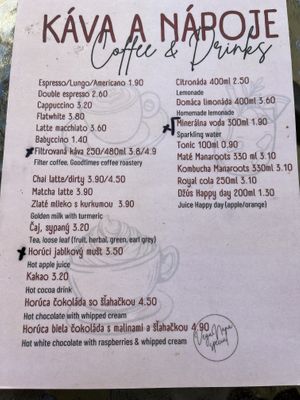 KÁVA A NÁPOJE
Coffee & Drinks
Espresso/Lungo/Americano 1.90
Double espresso 2.60
Cappuccino 3.20
Flatwhite 3.80
Latte macchiato 3.60
Babyccino 1.40
Filtrovaná káva 250/480ml 3.8/4.9
Filter coffee, Goodtimes coffee roastery
Chai latte/dirty 3.90/4.50
Matcha latte 3.90
Zlaté mlieko s kurkumou 3.90
Golden milk with turmeric
Čaj, sypaný 3.20
Tea, loose leaf (fruit, herbal, green, earl grey)
Horúci jablkový mušt 3.50
Hot apple juice
Kakao 3.20
Hot cocoa drink
Horúca čokoláda so šľahačkou 4.50
Hot chocolate with whipped cream
Horúca biela čokoláda s malinami a šľahačkou 4.90
Hot white chocolate with raspberries & whipped cream
Citronáda 400ml 2.50
Lemonade
Domáca limonáda 400ml 3.60
Homemade lemonade
Minerálna voda 300ml 1.90
Sparkling water
Tonic 100ml 0.90
Maté Manaroots 330 ml 3.10
Kombucha Manaroots 330ml 3.10
Royal cola 250ml 3.10
Džús Happy day 200ml 1.30
Juice Happy day (apple/orange)